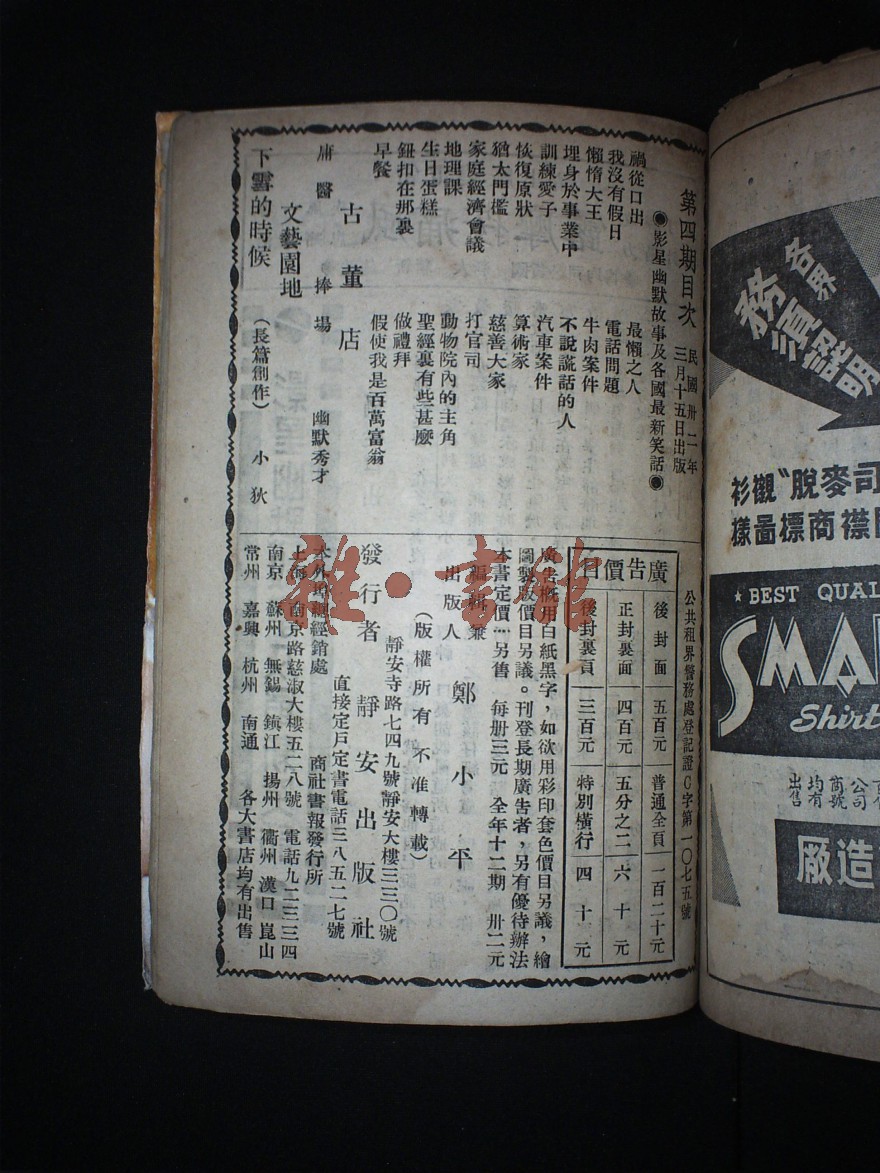 第四期目次
民國卅二年
三月十五日出版
◉影星幽默故事及各國最新笑話◉
禍從口出
最懶之人
我沒有假日
電話問題
懶惰大王
牛肉案件
埋身於事業中
不說謊話的人
訓練愛子
汽車案件
恢復原狀
算術家
猶太門檻
慈善大家
家庭經濟會議
打官司
地理課
動物院內的主角
生日蛋糕
聖經裏有些甚麼
鈕扣在那裏
做禮拜
早餐
假使我是百萬富翁
古董店
庸醫捧場
幽默秀才
文藝園地
下雪的時候
(長篇創作)
小狄
公共租界警務處登記證C字第一〇七五號
廣告價目
後封面 五百元 普通全頁 一百二十元
正封裏面 四百元 五分之二 六十元
後封裏頁 三百元 特別橫行 四十元
廣告概用白紙黑字,如欲用彩印套色價目另議,繪
圖製版價目另議。刊登長期廣告者,另有優待辦法
本書定價…另售 每册三元 全年十二期 卅二元
編輯兼
出版人
鄭小平
(版權所有 不准轉載)
靜安寺路七四九號靜安大樓三三〇號
發行者 靜安出版社
直接定戶定書電話三八五二七號
本外埠總經銷處 商社書報發行所
上海 南京路慈淑大樓五二八號 電話九二三三四
南京 蘇州 無錫 鎮江 揚州 衢州 漢口 崑山
常州 嘉興 杭州 南通 各大書店均有出售
雜·書館
各界
務須認明
司麥脫“襯衫
襟商標圖樣
★ BEST QUAL
SMA
Shirt
公司商號均有出售
廠造